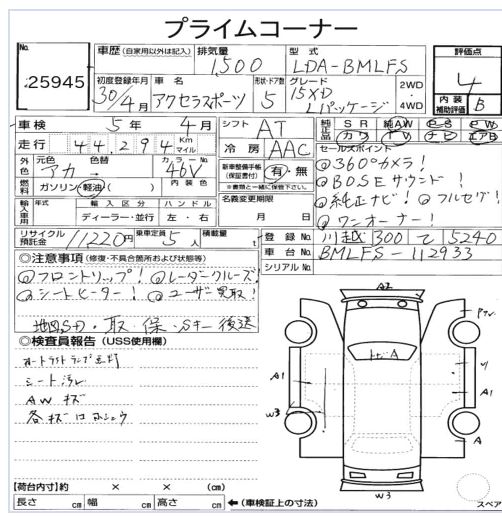 プライムコーナー
No.
25945
車歴 (自家用以外は記入)
排気量 1,500
型式 LDA-BMLFS
評価点 4
内装補助評価 B
初度登録年月 30/4月
車名 アクセラスポーツ
形状・ドア数 5
グレード 15XD Lパッケージ
2WD
4WD
車検 5年 4月
シフト AT
純正品 SR 純AW PS PW
カワ TV ナビ エアB
走行 44,294 Km マイル
冷房 AAC
セールスポイント
外色 元色 色替 カラーNo.
アカ 46V
新車整備手帳(保証書付) 有・無
※書類と一緒に保管下さい。
◎360°カメラ!
◎BOSEサウンド!
◎純正ナビ! ◎フルセグ!
◎ワンオーナー!
燃料 ガソリン・軽油・( ) 内装色
名義変更期限
月 日
輸入車用 年式 輸入区分 ハンドル
ディーラー・並行 左・右
リサイクル預託金 11220円
乗車定員 5人
積載量 t
登録No. 川越 300 て 5240
車台No. BMLFS-112933
シリアルNo.
◎注意事項 (修復・不具合箇所および状態等)
◎フロントリップ! ◎レーダークルーズ!
◎シートヒーター! ◎ユーザー買取!
地図SD・取・保・Sキー後送
◎検査員報告 (USS使用欄)
シート汚レ
AWキズ
A2
A1
W3
W3
A1
A
【荷台内寸】約 × × (cm)
長さ cm 幅 cm 高さ cm
←(車検証上の寸法)
スペア